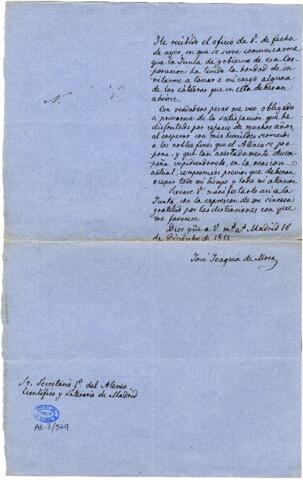 He recibido el oficio de V. de fecha
de ayer, en que se sirve comunicarme
que la Junta de gobierno de esa Cor-
poracion ha tenido la bondad de in-
vitarme a tomar a mi cargo alguna
de las cátedras que en ella deberan
abrirse.
Con verdadera pena me veo obligado
a privarme de la satisfaccion que he
disfrutado por espacio de muchos años,
al cooperar con mis humildes servicios
a los nobles fines que el Ateneo se pro-
pone, y que tan acertadamente desem-
peña impidiendomelo, en la ocasion
actual, compromisos previos que deberan
ocupar todo mi tiempo y toda mi atencion.
Sirvase V. manifestarlo asi a la
Junta, con la expresion de mi sincera
gratitud por las distinciones con que
me favorece.
Dios gue a V. ms. as. Madrid 16
de Diciembre de
José Joaquin de Mora
Sr. Secretario 1º del Ateneo
Cientifico y Literario de Madrid
AR-3/979